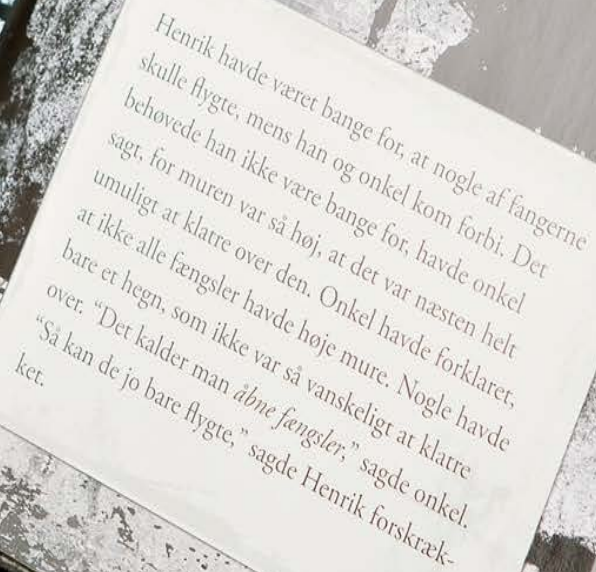 Henrik havde været bange for, at nogle af fangerne
skulle flygte, mens han og onkel kom forbi. Det
behøvede han ikke være bange for, havde onkel
sagt, for muren var så høj, at det var næsten helt
umuligt at klatre over den. Onkel havde forklaret,
at ikke alle fængsler havde høje mure. Nogle havde
bare et hegn, som ikke var så vanskeligt at klatre
over. “Det kalder man åbne fængsler,” sagde onkel.
“Så kan de jo bare flygte,” sagde Henrik forskræk-
ket.